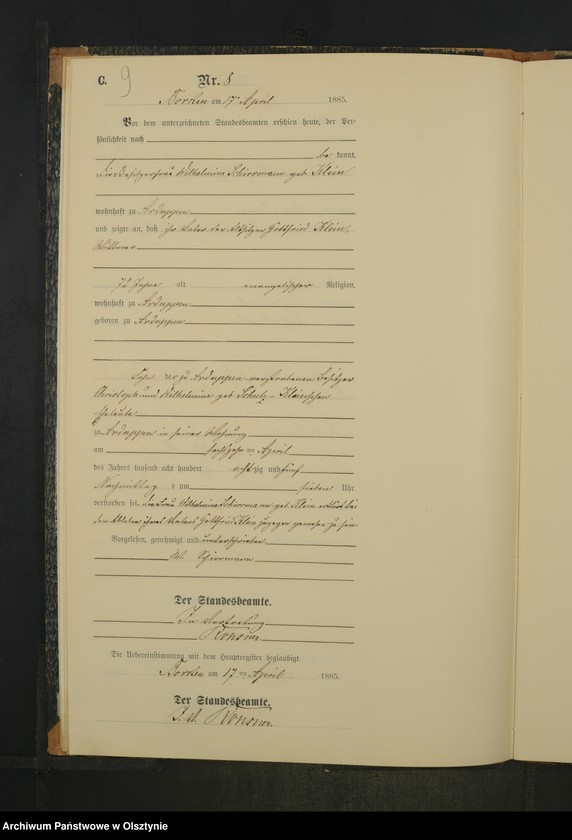 C. 9 Nr. 8
Borken am 17t April 1885.
Vor dem unterzeichneten Standesbeamten erschien heute, der Per-
sönlichkeit nach
be kannt,
die Besitzerfrau Wilhelmine Schirrmann geb. Klein
wohnhaft zu Ardappen
und zeigte an, daß ihr Vater der Altsitzer Gottfried Klein,
Wittwer
72 Jahre alt evangelischer Religion,
wohnhaft zu Ardappen
geboren zu Ardappen
Sohn der zu Ardappen verstorbenen Besitzer
Christoph und Wilhelmine geb. Schulz - Kleinschen
Eheleute
zu Ardappen in seiner Wohnung
am sechszehnten April
des Jahres tausend acht hundert achtzig und fünf
Nachmittags um sieben Uhr
verstorben sei. die Frau Wilhelmine Schirrmann geb. Klein erklärt bei
dem Ableben ihres Vaters Gottfried Klein zugegen gewesen zu sein
Vorgelesen, genehmigt und unterschrieben
W. Schirrmann
Der Standesbeamte.
In Vertretung
Die Uebereinstimmung mit dem Hauptregister beglaubigt.
Borken am 17ten April 1885.
Der Standesbeamte.
I. V.
Archiwum Państwowe w Olsztynie